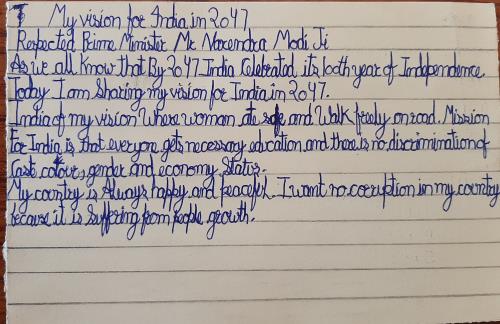 My vision for India in 2047
Respected Prime Minister Mr. Narendra Modi Ji
As we all know that By 2047 India Celebrated its 100th year of Independence.
Today I am Sharing my vision for India in 2047.
India of my vision Where woman are safe and Walk freely on road. Mission
For India is that everyone gets necessary education and there is no discrimination of
Caste, colour, gender and economy Status.
My country is Always happy and peaceful. I want no corruption in my country
because it is Suffering from people growth.